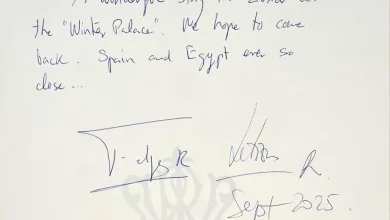 wonderful stay in
the "Winter Palace". We hope to come
back. Spain and Egypt ever so
close...
R.
Sept 2025.